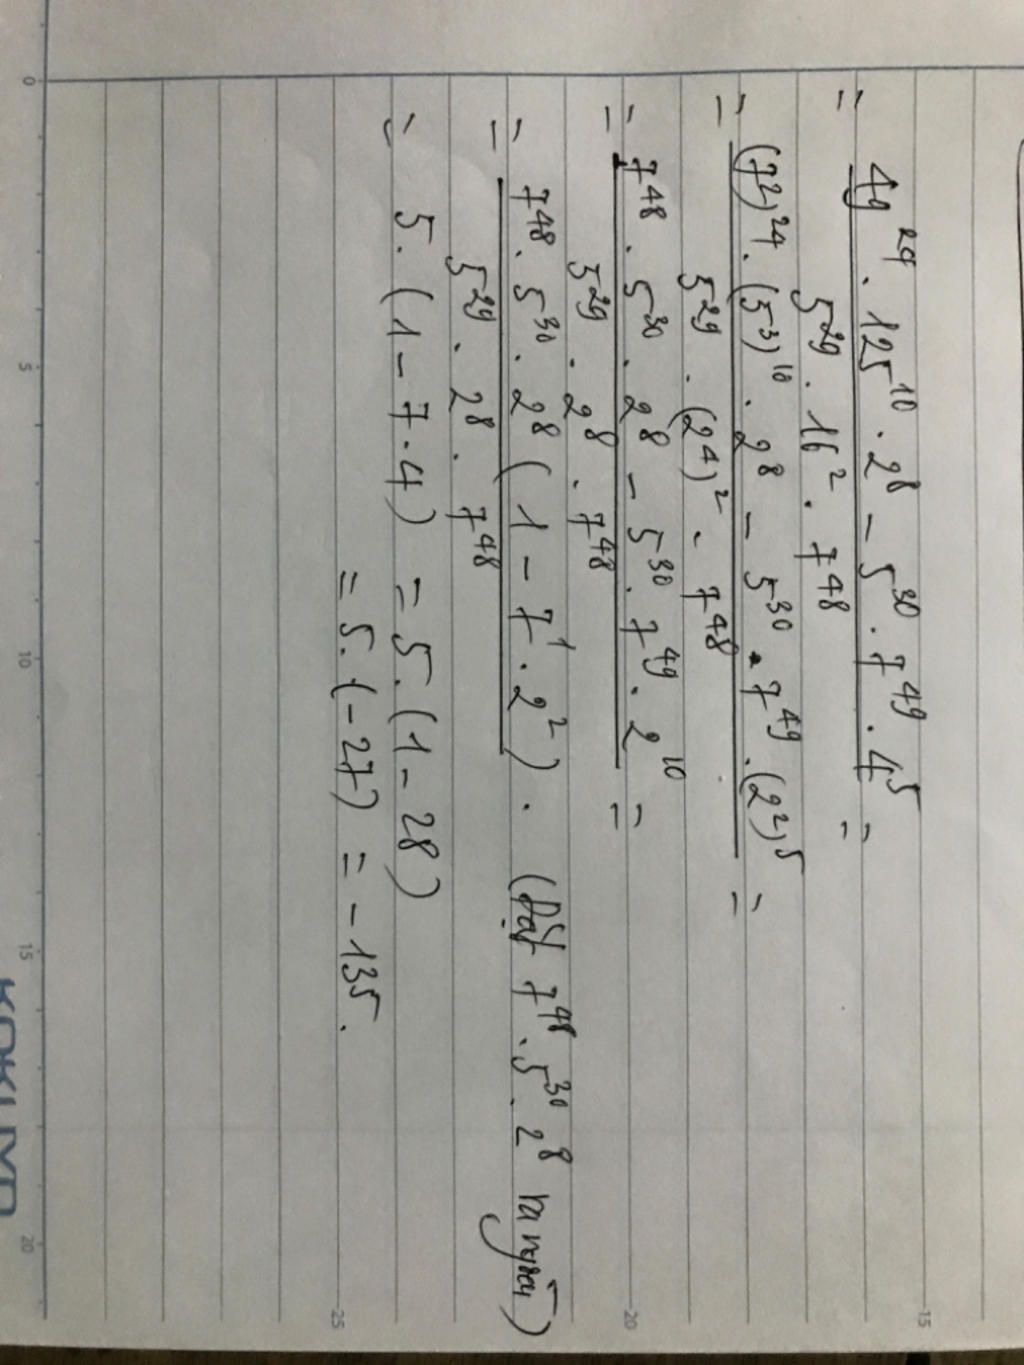 = (49²⁴ . 125¹⁰ . 2⁸ − 5³⁰ . 7⁴⁹ . 4⁵) / (5²⁹ . 16² . 7⁴⁸) =
= ((7²)²⁴ . (5³)¹⁰ . 2⁸ − 5³⁰ . 7⁴⁹ . (2²)⁵) / (5²⁹ . (2⁴)² . 7⁴⁸) =
= (7⁴⁸ . 5³⁰ . 2⁸ − 5³⁰ . 7⁴⁹ . 2¹⁰) / (5²⁹ . 2⁸ . 7⁴⁸) =
= (7⁴⁸ . 5³⁰ . 2⁸ (1 − 7¹ . 2²)) / (5²⁹ . 2⁸ . 7⁴⁸) . (Đặt 7⁴⁸ . 5³⁰ . 2⁸ ra ngoài)
= 5 . (1 − 7 . 4) = 5 . (1 − 28)
= 5 . (−27) = −135 .
0 5 10 15 20
15
20
25
KOKUYO